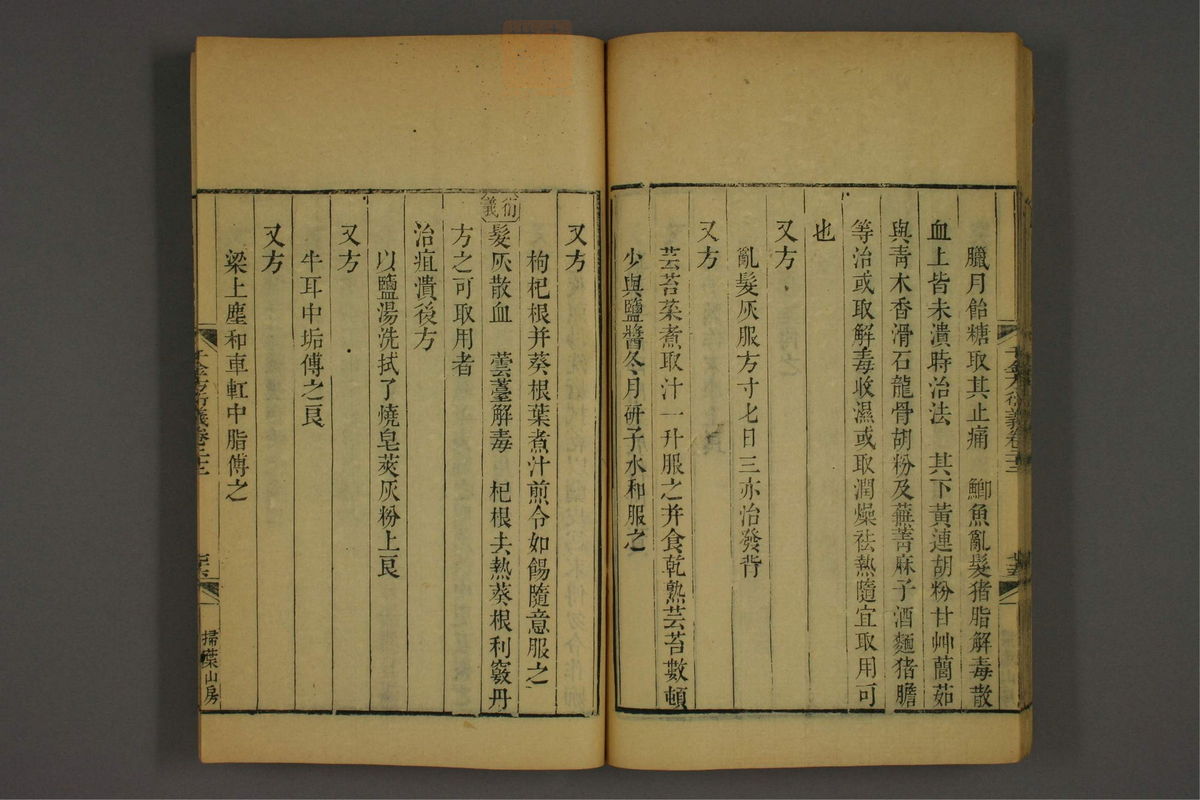 臘月飴糖取其止痛　鯽魚亂髮猪脂解毒散
血上皆未潰時治法　其下黃連胡粉甘艸䕡茹
與青木香滑石龍骨胡粉及蕪菁麻子酒麵猪膽
等治或取解毒收濕或取潤燥祛熱隨宜取用可
也
又方
亂髮灰服方寸匕日三亦治發背
又方
芸苔菜煮取汁一升服之并食乾熟芸苔數頓
少與鹽醬冬月研子水和服之
又方
枸杞根并葵根葉煮汁煎令如餳隨意服之
衍義
髮灰散血　蕓薹解毒　杞根去熱葵根利竅丹
方之可取用者
治疽潰後方
以鹽湯洗拭了燒皂莢灰粉上良
又方
牛耳中垢傅之良
又方
梁上塵和車釭中脂傅之
千金方衍義卷二十二
掃葉山房